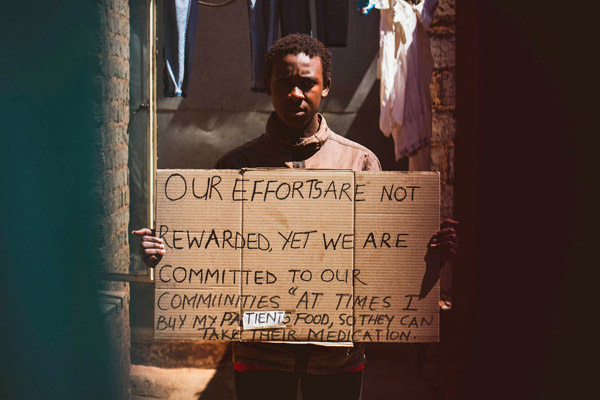 OUR EFFORTS ARE NOT
REWARDED, YET WE ARE
COMMITTED TO OUR
COMMUNITIES "AT TIMES I
BUY MY PATIENTS FOOD, SO THEY CAN
TAKE THEIR MEDICATION.